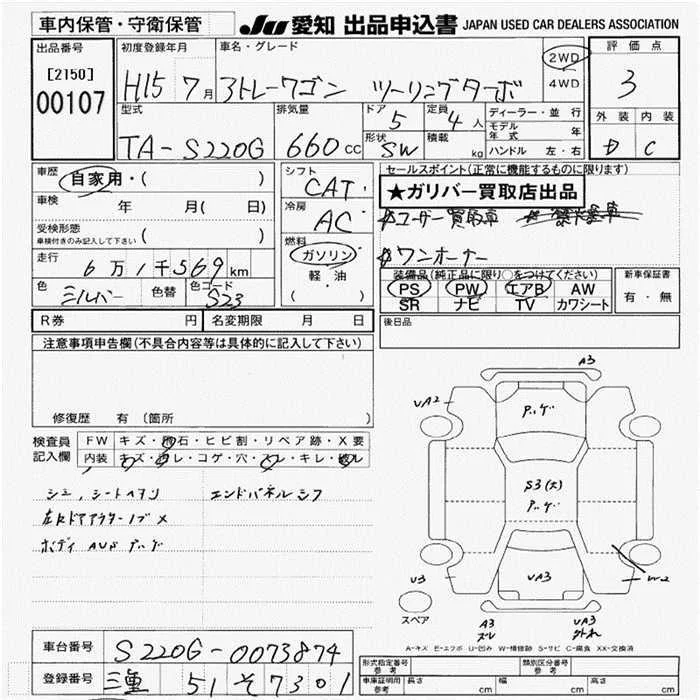 車内保管・守衛保管 JU 愛知 出品申込書 JAPAN USED CAR DEALERS ASSOCIATION
出品番号 初度登録年月 車名・グレード 評価点
[2150] 00107 H15 7月 3トレーワゴン ツーリングターボ 2WD 4WD 3
型式 排気量 ドア 定員 ディーラー・並行 外装 内装
TA-S220G 660cc 5 4人 モデル年式 年 D C
形状 SW 積載 kg ハンドル 左・右
車歴 自家用・( ) シフト CAT セールスポイント(正常に機能するものに限ります)
★ガリバー買取店出品
車検 年 月( 日) 冷房 AC ユーザー買取車
受検形態 車検付きのみ記入して下さい ( ) 燃料 ガソリン 軽・油 ( )
ワンオーナー
走行 6万1千569km
装備品(純正品に限り○をつけてください) 新車保証書
色 シルバー 色替 色コード S23
PS PW エアB AW 有・無
SR ナビ TV カワシート
R券 円 名変期限 月 日 後日品
注意事項申告欄(不具合内容等は具体的に記入して下さい)
修復歴 有 (箇所
検査員記入欄 FW キズ・飛石・ヒビ割・リペア跡・X要
内装 キズ・汚レ・コゲ・穴・スレ・キレ・破レ
エンドパネルシワ
A3
UA2
アッゲ
S3(大)
アッゲ
UA3
U3
W2
スペア
A3 ズレ
UA3
A-キズ E-エクボ U-凹み W-補修跡 S-サビ C-腐食 XX-交換済
車台番号 S220G-0073874
形式指定番号 参考 類別区分番号 参考
登録番号 三重 51 そ 7301
車庫証明用 参考 長さ cm 幅 cm 高さ cm